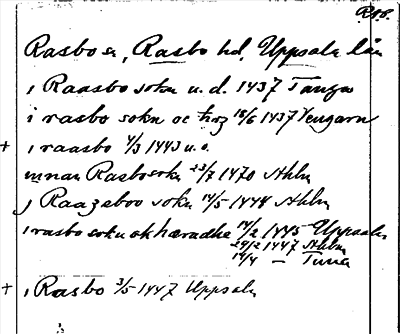 Rasbo sn, Rasbo hd, Uppsala län
i Raasbo sokn u.d. 1437 Tunga
i rasbo sokn oc hræz 15/6 1437 Vengarn
+ i raasbo 4/3 1443 u.o.
innan Rasbosokn 23/7 1470 Sthlm
j Raazaboo sokn 14/5 1444 Sthlm
i rasbo sokn ok hæradhe 14/2 1445 Uppsala
29/2 1447 Sthlm
14/4 — Tuna
+ i Rasbo 3/5 1447 Uppsala